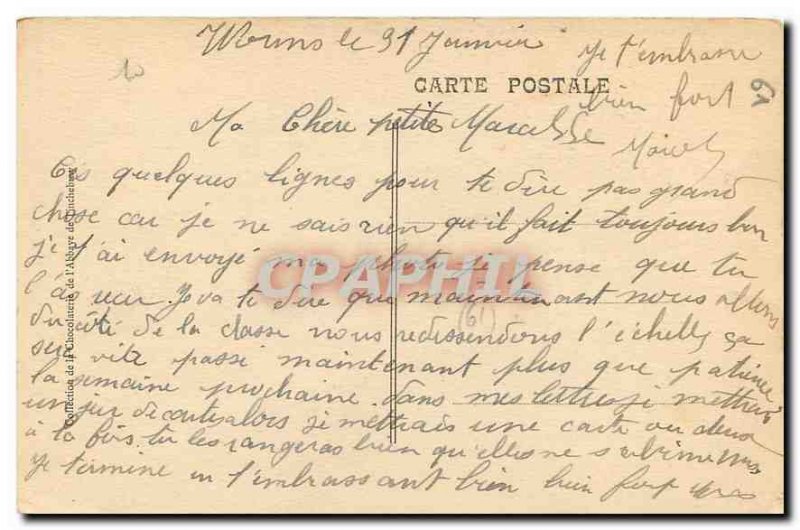 Worms le 31 Janvier
je t'embrasse
bien fort
Marcel
61
CARTE POSTALE
Ma Chère petite Marcelle
Ces quelques lignes pour te dire pas grand
chose car je ne sais rien qu'il fait toujours bon
je t'ai envoyé ma photo je pense que tu
l'as reçu. Je va te dire que maintenant nous allons
du côté de la classe nous redissendons l'échelle ça
sera vite passé maintenant plus que patience
la semaine prochaine. dans mes lettres je mettrais
un jeu de cartes alors je mettrais une carte ou deux
à la fois, tu les rangeras bien qu'elles ne s'abiment pas
Je termine en t'embrassant bien bien fort
(61)
Collection de la Chocolaterie de l'Abbaye de
CPAPHIL